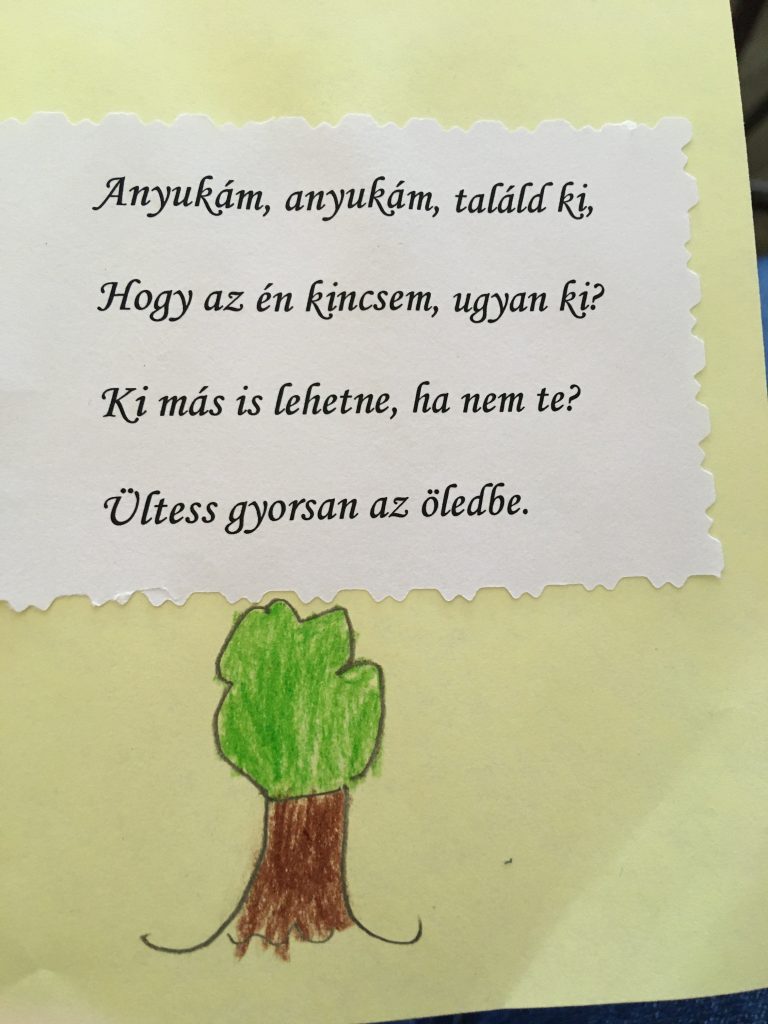 Anyukám, anyukám, találd ki,
Hogy az én kincsem, ugyan ki?
Ki más is lehetne, ha nem te?
Ültess gyorsan az öledbe.